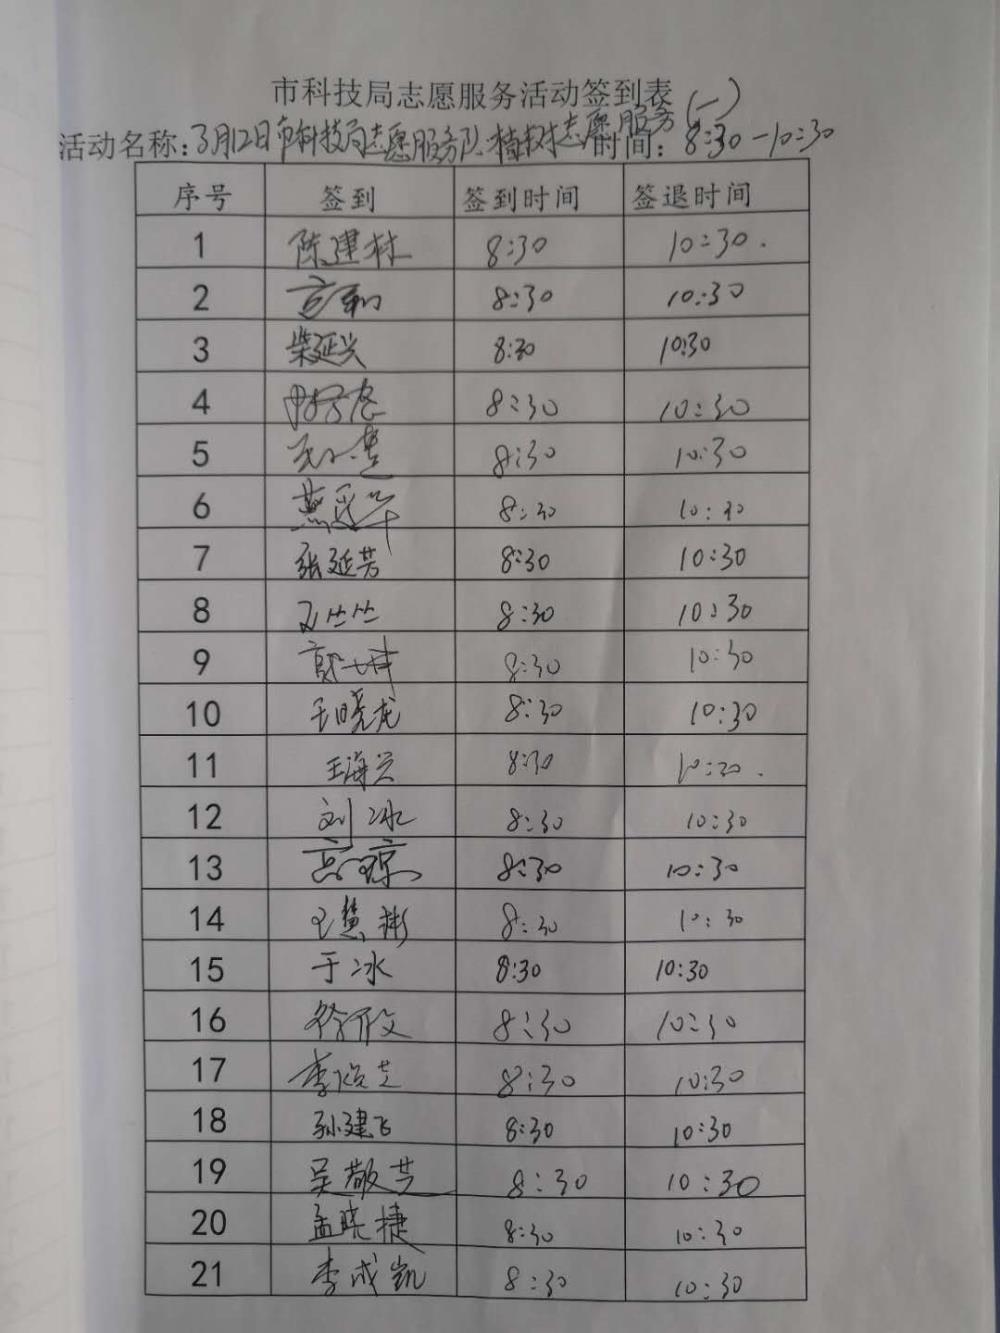 市科技局志愿服务活动签到表(一)
活动名称:3月12日市科技局志愿服务队植树志愿服务 时间:8:30-10:30
序号 签到 签到时间 签退时间
1 陈建林 8:30 10:30.
2 8:30 10:30
3 柴延兴 8:30 10:30
4 8:30 10:30
5 8:30 10:30
6 燕延华 8:30 10:30
7 张延芳 8:30 10:30
8 王丛丛 8:30 10:30
9 8:30 10:30
10 王晓龙 8:30 10:30
11 王海兴 8:30 10:30.
12 刘冰 8:30 10:30
13 高琼 8:30 10:30
14 王慧彬 8:30 10:30
15 于冰 8:30 10:30
16 8:30 10:30
17 8:30 10:30
18 孙建飞 8:30 10:30
19 吴敬芝 8:30 10:30
20 孟晓捷 8:30 10:30
21 李成凯 8:30 10:30